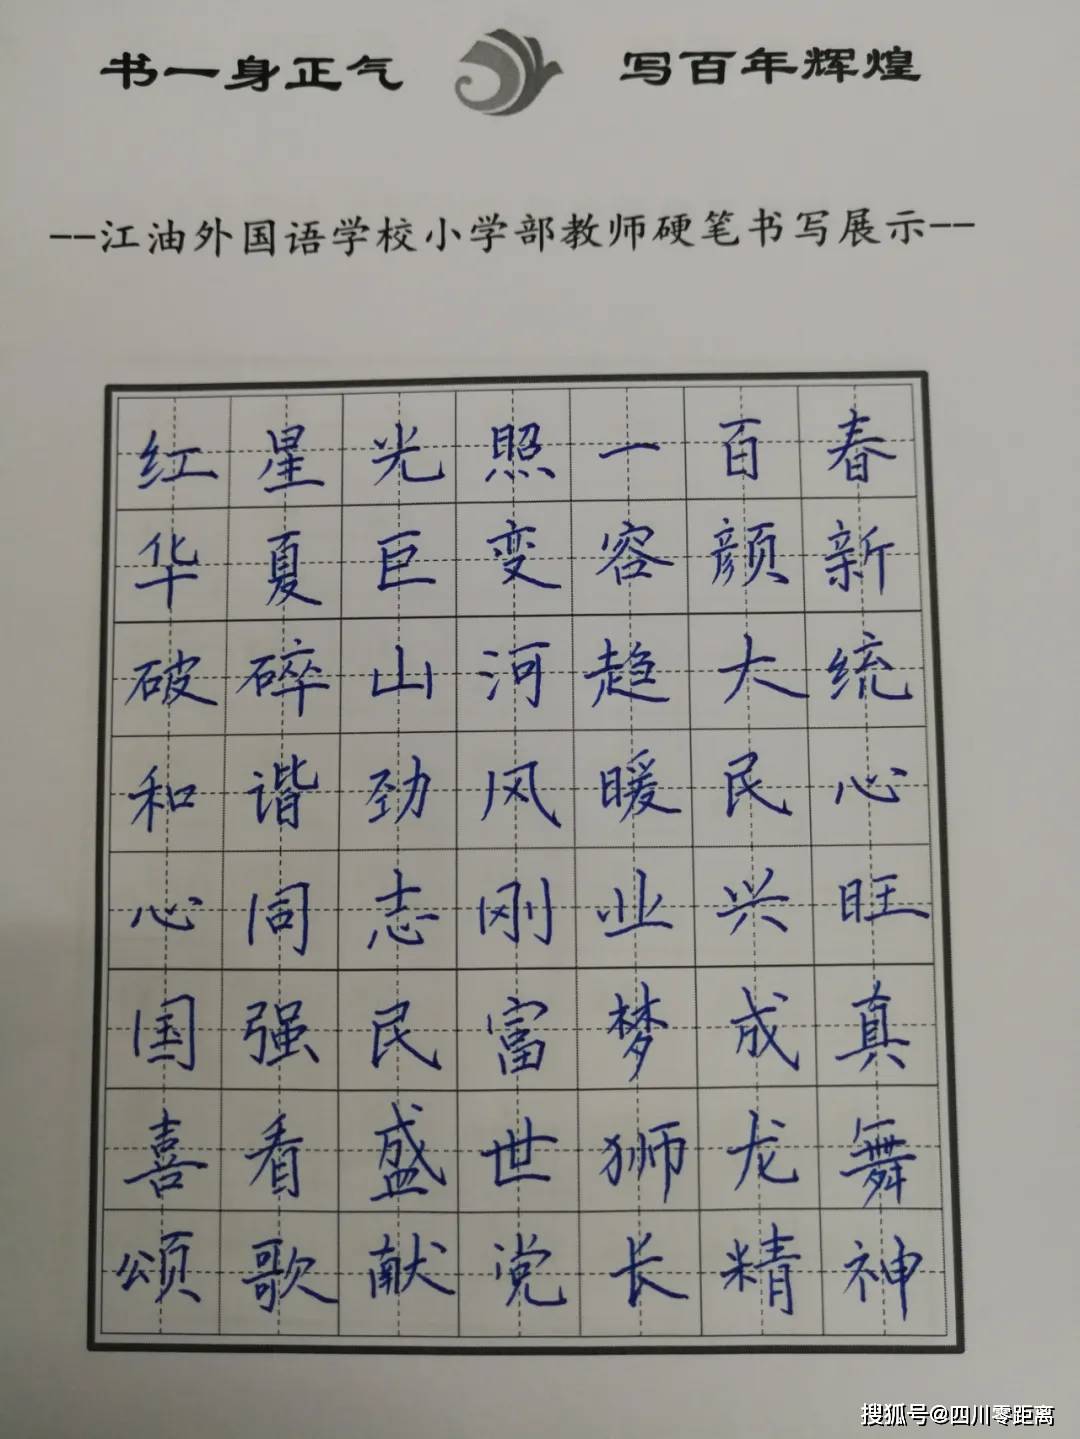 书一身正气 写百年辉煌
--江油外国语学校小学部教师硬笔书写展示--
红星光照一百春
华夏巨变容颜新
破碎山河趋大统
和谐劲风暖民心
心同志刚业兴旺
国强民富梦成真
喜看盛世狮龙舞
颂歌献党长精神
搜狐号@四川零距离